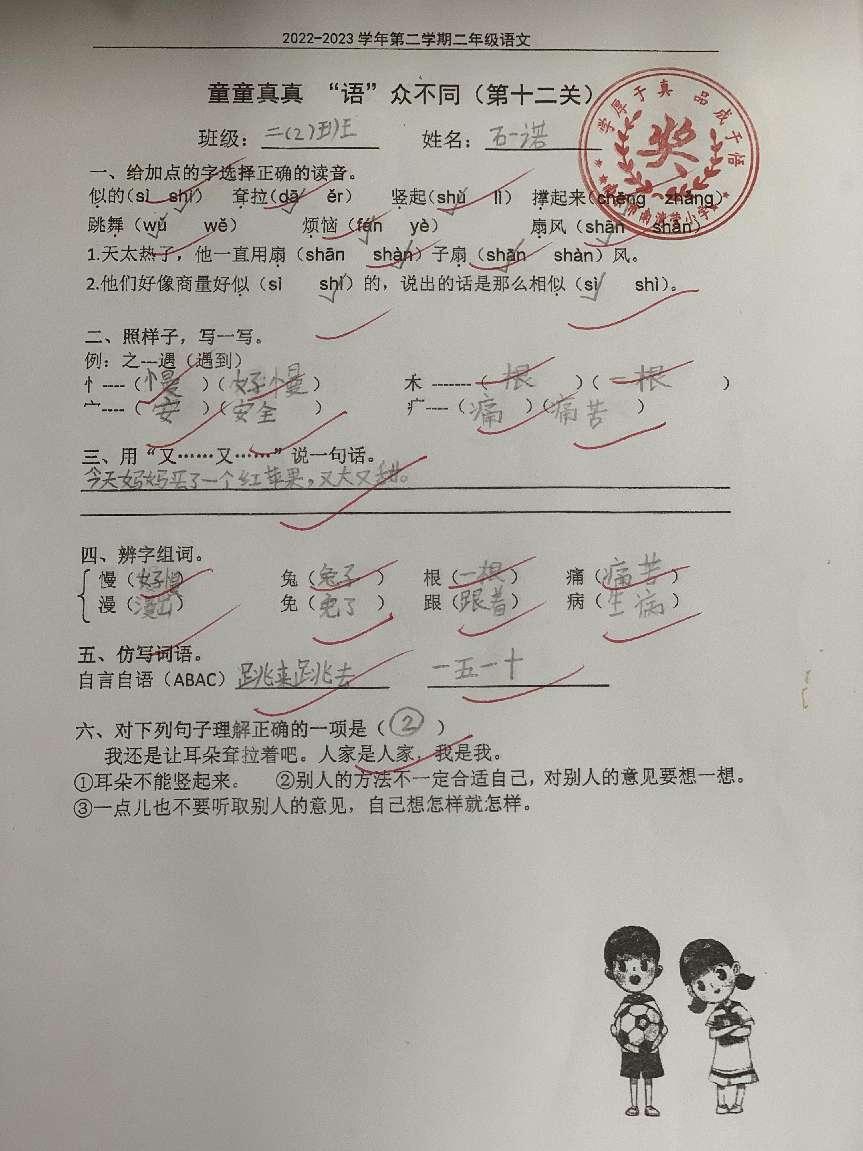 2022-2023学年第二学期二年级语文
童童真真 “语”众不同（第十二关）
班级：二(2)班 姓名：石一诺
学厚于真 品成于悟
奖
一、给加点的字选择正确的读音。
似的（sì shì） 耷拉（dā ěr） 竖起（shù lì） 撑起来（chēng zhǎng）
跳舞（wǔ wě） 烦恼（fán yè） 扇风（shān shàn）
1.天太热了，他一直用扇（shān shàn）子扇（shān shàn）风。
2.他们好像商量好似（sì shì）的，说出的话是那么相似（sì shì）。
二、照样子，写一写。
例：之---遇（遇到）
忄----（慢）（好慢） 禾 -------（根）（一根）
宀----（安）（安全） 疒----（痛）（痛苦）
三、用“又……又……”说一句话。
今天妈妈买了一个红苹果，又大又甜。
四、辨字组词。
慢（好慢） 兔（兔子） 根（一根） 痛（痛苦）
漫（漫出） 免（免了） 跟（跟着） 病（生病）
五、仿写词语。
自言自语（ABAC）跳来跳去 一五一十
六、对下列句子理解正确的一项是（②）
我还是让耳朵耷拉着吧。人家是人家，我是我。
①耳朵不能竖起来。 ②别人的方法不一定合适自己，对别人的意见要想一想。
③一点儿也不要听取别人的意见，自己想怎样就怎样。